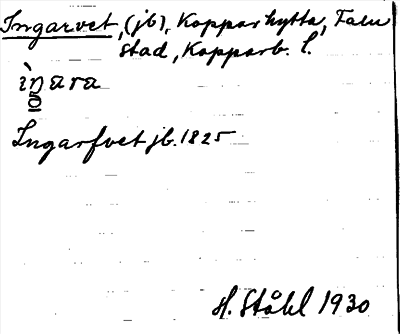 Ingarvet, (jb), Kopparhytta, Falu
stad, Kopparb. l.
Ingarfvet jb. 1825
H. Ståhl 1930